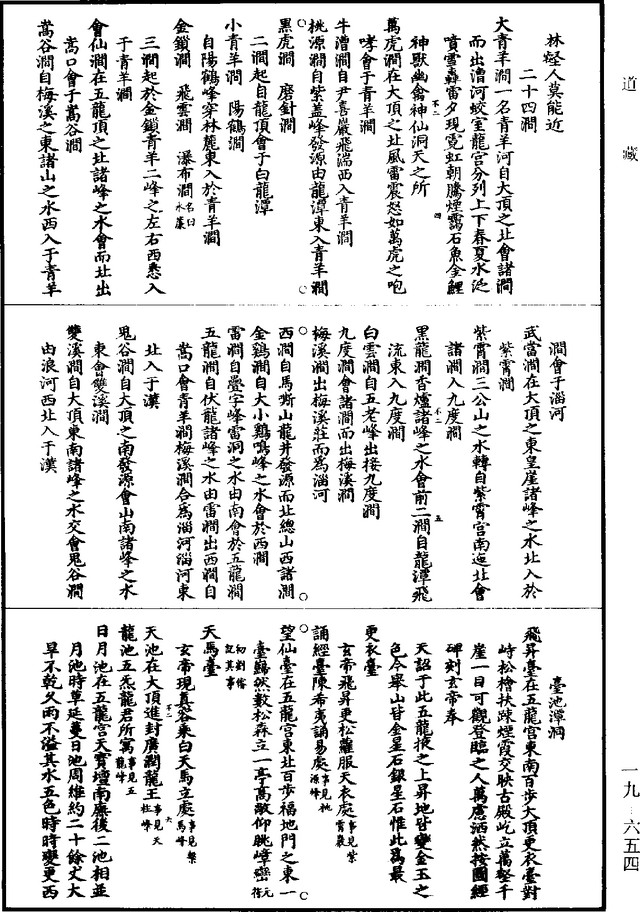 道藏
林輕人莫能近
二十四澗
大青羊澗一名青羊河自大頂之北會諸澗
而出漕河蛟室龍宮分列上下春夏水泛
噴雪轟雷夕現霓虹朝騰煙靄石魚金鯉
神獸幽禽神仙洞天之所
萬虎澗在大頂之北風雷震怒如萬虎之咆
哮會于青羊澗
牛漕澗自尹喜巖飛湍西入青羊澗
桃源澗自紫蓋峰發源由龍潭東入青羊澗
黑虎澗 磨針澗
二澗起自龍頂會于白龍潭
小青羊澗 陽鶴澗
自陽鶴峰穿林麓東入於青羊澗
金鎖澗 飛雲澗 瀑布澗名曰水簾
三澗起於金鎖青羊二峰之左右西悉入
于青羊澗
會仙澗在五龍頂之北諸峰之水會而北出
蒿口會于蒿谷澗
蒿谷澗自梅溪之東諸山之水西入于青羊
澗會于淄河
武當澗在大頂之東皇崖諸峰之水北入於
紫霄澗
紫霄澗三公山之水轉自紫霄宮南迤北會
諸澗入九度澗
黑龍澗香爐諸峰之水會前二澗自龍潭飛
流東入九度澗
白雲澗自五老峰出接九度澗
九度澗會諸澗而出梅溪澗
梅溪澗出梅溪莊而爲淄河
西澗自馬嘶山龍井發源而北總山西諸澗
金鷄澗自大小鷄鳴峰之水會於西澗
雷澗自疊字峰雷洞之水由南會於五龍澗
五龍澗自伏龍諸峰之水由雷澗出西澗自
蒿口會青羊澗梅溪澗合爲淄河淄河東
北入于漢
鬼谷澗自大頂之南發源會山南諸峰之水
東會雙溪澗
雙溪澗自大頂東南諸峰之水交會鬼谷澗
由浪河西北入于漢
臺池潭洞
飛昇臺在五龍宮東南百步大頂更衣臺對
峙松檜扶疎煙霞交映古殿屹立萬壑千
崖一目可觀登臨之人萬慮洒然按圖經
碑刻玄帝奉
天詔于此五龍掖之上昇地皆變金玉之
色今舉山皆金星石銀星石惟此爲最
更衣臺
玄帝飛昇更松蘿服天衣處事見紫霄巖
誦經臺陳希夷誦易處事見桃源峰
望仙臺在五龍宮東北百步福地門之東一
臺黯然數松森立一亭高敞仰眺嶂巒元符初劉像記其事
天馬臺
玄帝現真容乘白天馬立處事見聚馬峰
天池在大頂進封廣潤龍王事見天柱峰
龍池五炁龍君所寓事見五龍峰
日月池在五龍宮天寶壇南廉後二池相並
月池時草延蔓日池周維約二十餘丈大
旱不乾久雨不溢其水五色時時變更西
一九—六五四